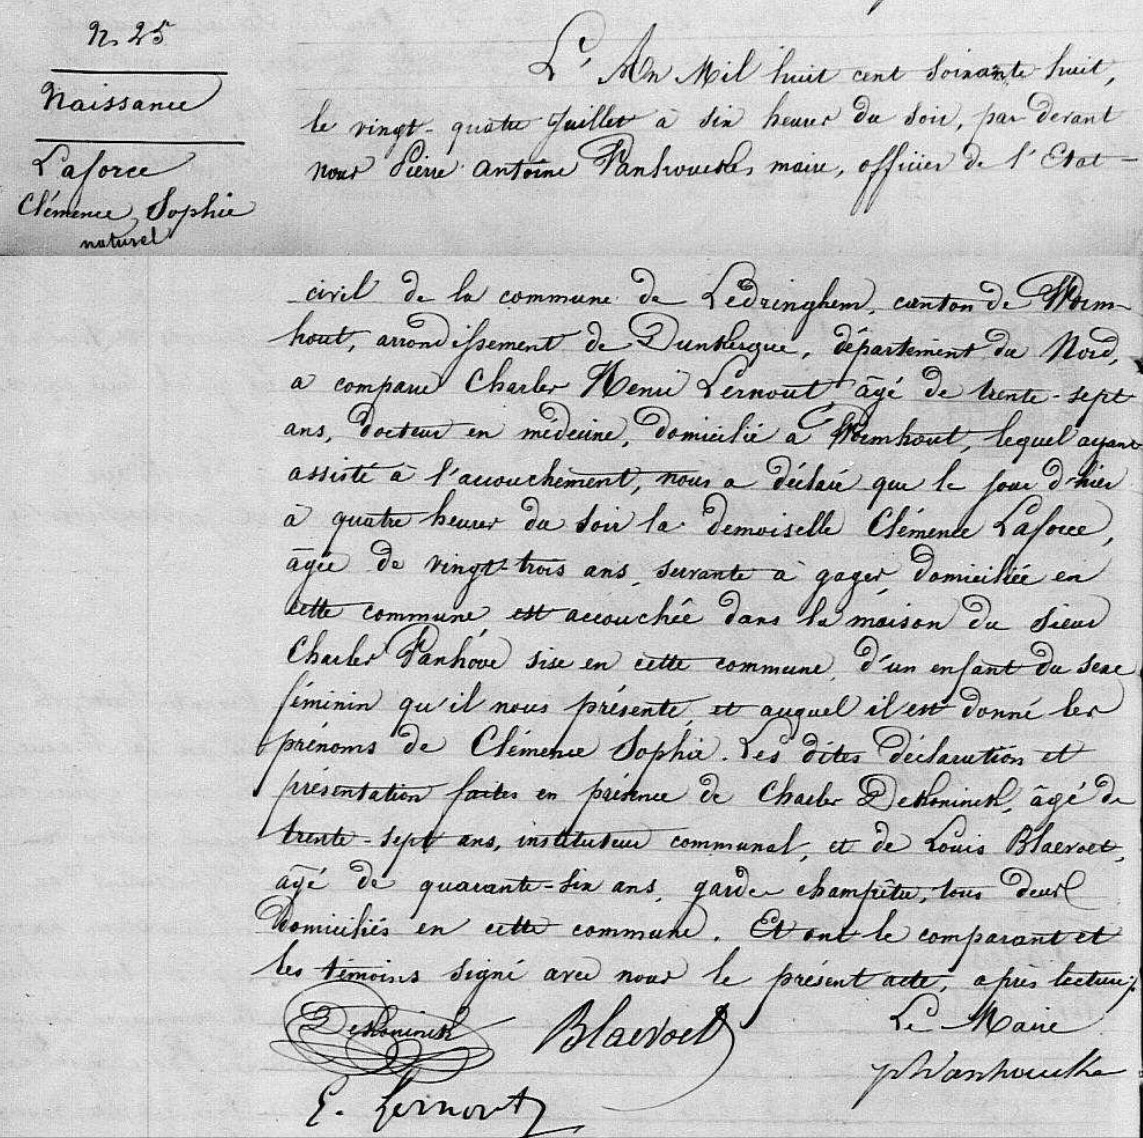 N. 25
Naissance
Laforce
Clémence Sophie
naturel
L'An Mil huit cent soixante huit,
le vingt-quatre Juillet à six heures du soir, par devant
nous Pierre Antoine Vanhoucke, maire, officier de l'Etat-
civil de la commune de Ledringhem, canton de Worm-
hout, arrondissement de Dunkerque, département du Nord,
a comparu Charles Henri Lernout, âgé de trente-sept
ans, docteur en médecine, domicilié à Wormhout, lequel ayant
assisté à l'accouchement, nous a déclaré que le jour d'hier
à quatre heures du soir la demoiselle Clémence Laforce,
âgée de vingt-trois ans, servante à gages domiciliée en
cette commune est accouchée dans la maison du sieur
Charles Vanhove sise en cette commune, d'un enfant du sexe
féminin qu'il nous présente, et auquel il est donné les
prénoms de Clémence Sophie. Les dites déclaration et
présentation faites en présence de Charles Dekoninck, âgé de
trente-sept ans, instituteur communal, et de Louis Blaevoet,
âgé de quarante-six ans, garde champêtre, tous deux
domiciliés en cette commune. Et ont le comparant et
les témoins signé avec nous le présent acte, après lecture.
Dekoninck Blaevoet Le Maire
Vanhoucke
Lernout